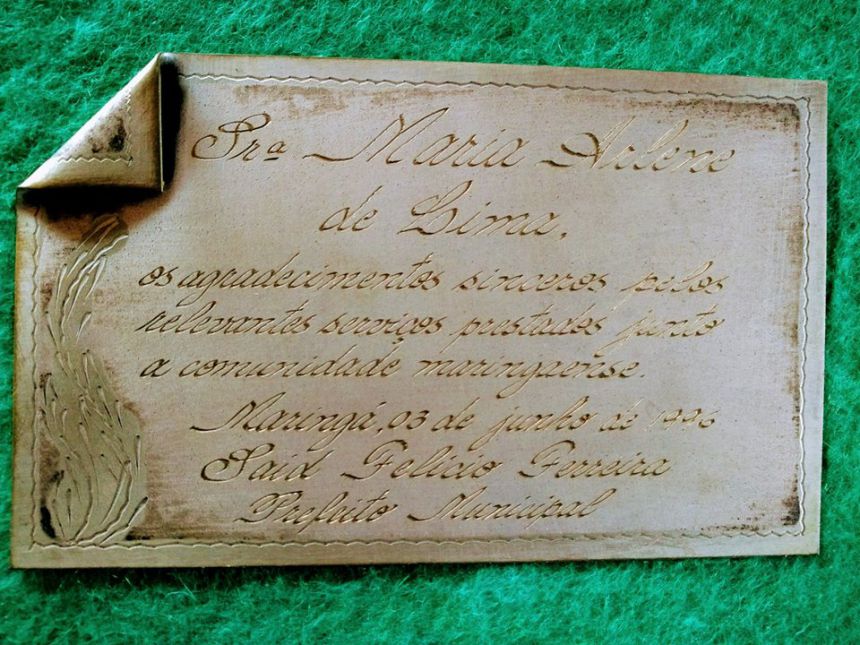 Srª Maria Arlene
de Lima,
os agradecimentos sinceros pelos
relevantes serviços prestados junto
a comunidade maringaense.
Maringá, 03 de junho de 1996
Said Felicio Ferreira
Prefeito Municipal